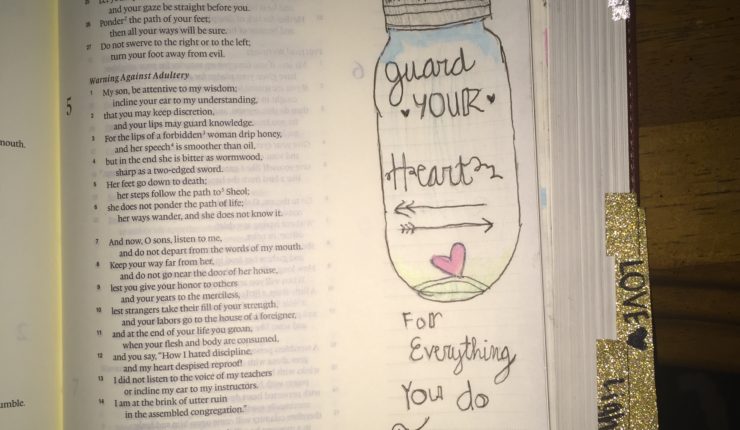 and your gaze be straight before you.
26 Ponder² the path of your feet;
then all your ways will be sure.
27 Do not swerve to the right or to the left;
turn your foot away from evil.
Warning Against Adultery
5
1 My son, be attentive to my wisdom;
incline your ear to my understanding,
2 that you may keep discretion,
and your lips may guard knowledge.
3 For the lips of a forbidden³ woman drip honey,
and her speech⁴ is smoother than oil,
4 but in the end she is bitter as wormwood,
sharp as a two-edged sword.
5 Her feet go down to death;
her steps follow the path to⁵ Sheol;
6 she does not ponder the path of life;
her ways wander, and she does not know it.
7 And now, O sons, listen to me,
and do not depart from the words of my mouth.
8 Keep your way far from her,
and do not go near the door of her house,
9 lest you give your honor to others
and your years to the merciless,
10 lest strangers take their fill of your strength,
and your labors go to the house of a foreigner,
11 and at the end of your life you groan,
when your flesh and body are consumed,
12 and you say, "How I hated discipline,
and my heart despised reproof!
13 I did not listen to the voice of my teachers
or incline my ear to my instructors.
14 I am at the brink of utter ruin
in the assembled congregation."
mouth.
umble.
guard
♥ YOUR ♥
Heart
For
Everything
You do
LOVE ♥
LIGH